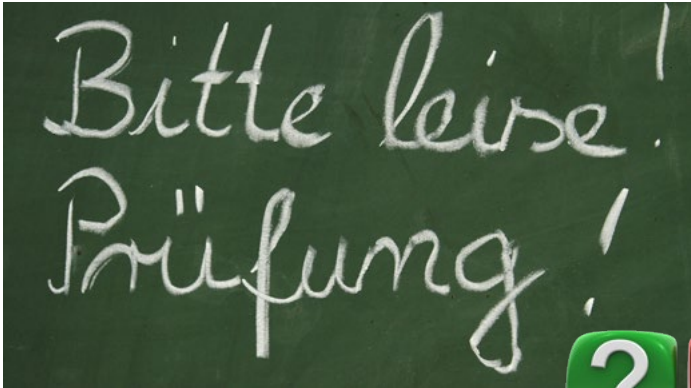 Bitte leise!
Prüfung!
?